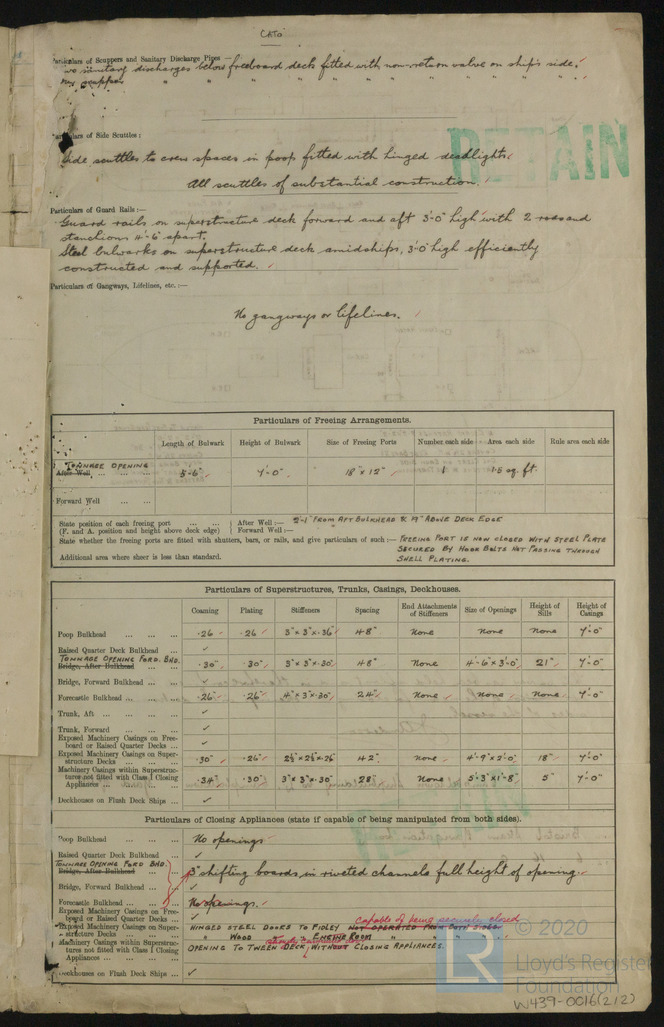 CATO
Particulars of Scuppers and Sanitary Discharge Pipes —
two sanitary discharges below freeboard deck fitted with non-return valve on ship's side.
scuppers " " " " " " " " " "
Particulars of Side Scuttles :
Side scuttles to crew spaces in poop fitted with hinged deadlights.
RETAIN
All scuttles of substantial construction.
Particulars of Guard Rails :—
Guard rails on superstructure deck forward and aft 3'-0" high with 2 rods and
stanchions 4'-6" apart.
Steel bulwarks on superstructure deck amidships, 3'-0 high efficiently
constructed and supported.
Particulars of Gangways, Lifelines, etc. :—
No gangways or lifelines.
Particulars of Freeing Arrangements.
Length of Bulwark Height of Bulwark Size of Freeing Ports Number each side Area each side Rule area each side
TONNAGE OPENING
After Well ... 5'-6" 7'-0" 18" x 12" 1 1.5 sq. ft.
Forward Well ... ...
State position of each freeing port ... ... After Well :— 2'-1" FROM AFT BULKHEAD & 9" ABOVE DECK EDGE
(F. and A. position and height above deck edge) Forward Well :—
State whether the freeing ports are fitted with shutters, bars, or rails, and give particulars of such :— FREEING PORT IS NOW CLOSED WITH STEEL PLATE
SECURED BY HOOK BOLTS NOT PASSING THROUGH
Additional area where sheer is less than standard. SHELL PLATING.
Particulars of Superstructures, Trunks, Casings, Deckhouses.
Coaming Plating Stiffeners Spacing End Attachments of Stiffeners Size of Openings Height of Sills Height of Casings
Poop Bulkhead ... ... ... .26 .26 3" x 3" x .36" 48" None None None 7'-0"
Raised Quarter Deck Bulkhead ...
TONNAGE OPENING FORD. BHD.
Bridge, After Bulkhead ... ... .30" .30" 3" x 3" x .30" 48" None 4'-6" x 3'-0" 21" 7'-0"
Bridge, Forward Bulkhead ... ...
Forecastle Bulkhead ... ... ... .26" .26" 4" x 3" x .30" 24" None None None 7'-0"
Trunk, Aft ... ... ...
Trunk, Forward ... ... ...
Exposed Machinery Casings on Free-
board or Raised Quarter Decks ...
Exposed Machinery Casings on Super-
structure Decks ... ... .30" .26" 2½" x 2½" x .26" 42" None 4'-9" x 2'-0" 18" 7'-0"
Machinery Casings within Superstruc-
tures not fitted with Class I Closing
Appliances ... ... ... .34" .30" 3" x 3" x .30" 28" None 5'-3" x 1'-8" 5" 7'-0"
Deckhouses on Flush Deck Ships ...
Particulars of Closing Appliances (state if capable of being manipulated from both sides).
Poop Bulkhead ... ... ... No openings
Raised Quarter Deck Bulkhead ...
TONNAGE OPENING FORD BHD.
Bridge, After Bulkhead ... ... 3" shifting boards in riveted channels full height of opening.
Bridge, Forward Bulkhead ...
Forecastle Bulkhead ... ... ... No openings.
Exposed Machinery Casings on Free-
board or Raised Quarter Decks ... capable of being securely closed
Exposed Machinery Casings on Super-
structure Decks ... ... HINGED STEEL DOORS TO FIDLEY NOT OPERATED FROM BOTH SIDES
" WOOD " " ENGINE ROOM " "
Machinery Casings within Superstruc-
tures not fitted with Class I Closing
Appliances ... ... ... OPENING TO TWEEN DECK, WITHOUT CLOSING APPLIANCES.
Deckhouses on Flush Deck Ships ...
LR
© 2020
Lloyd's Register
Foundation
W439-0016(2/2)